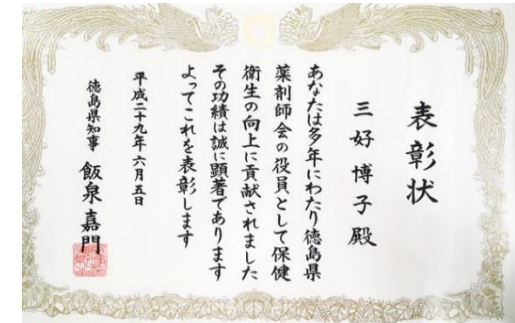 表彰状
三好博子殿
あなたは多年にわたり徳島県
薬剤師会の役員として保健
衛生の向上に貢献されました
その功績は誠に顕著であります
よってこれを表彰します
平成二十九年六月五日
徳島県知事 飯泉嘉門